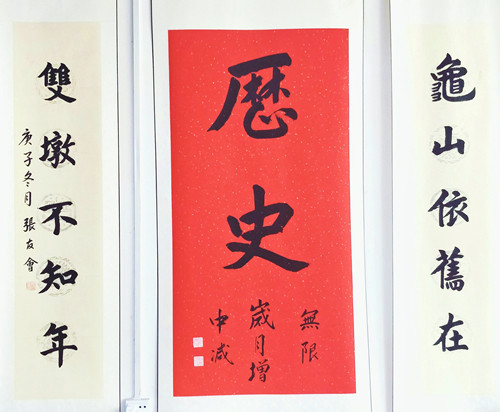 龜山依舊在
歷史
無限
歲月增
中減
雙墩不知年
庚子冬月張友會